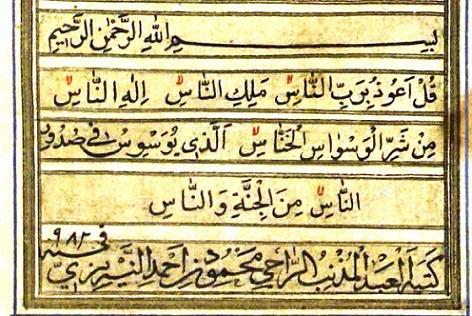 بِسْمِ اللهِ الرَّحْمٰنِ الرَّحِيمِ
قُلْ اَعُوذُ بِرَبِّ النَّاسِ مَلِكِ النَّاسِ اِلٰهِ النَّاسِ
مِنْ شَرِّ الْوَسْوَاسِ الْخَنَّاسِ اَلَّذِى يُوَسْوِسُ فِى صُدُورِ
النَّاسِ مِنَ الْجِنَّةِ وَالنَّاسِ
كتبه العبد المذنب الراجي محمود بن احمد النيريزي في سنة ٩٨٢